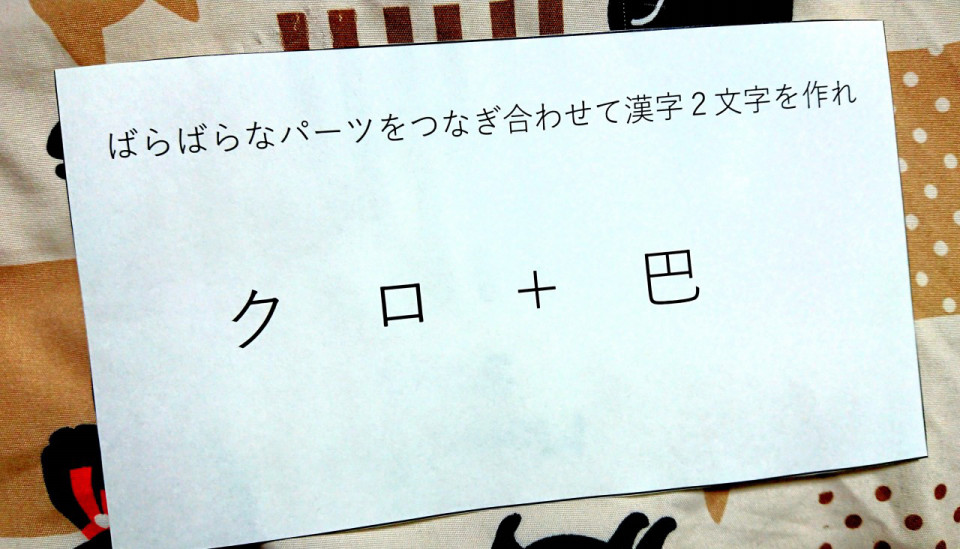 ばらばらなパーツをつなぎ合わせて漢字2文字を作れ
ク ロ + 巴